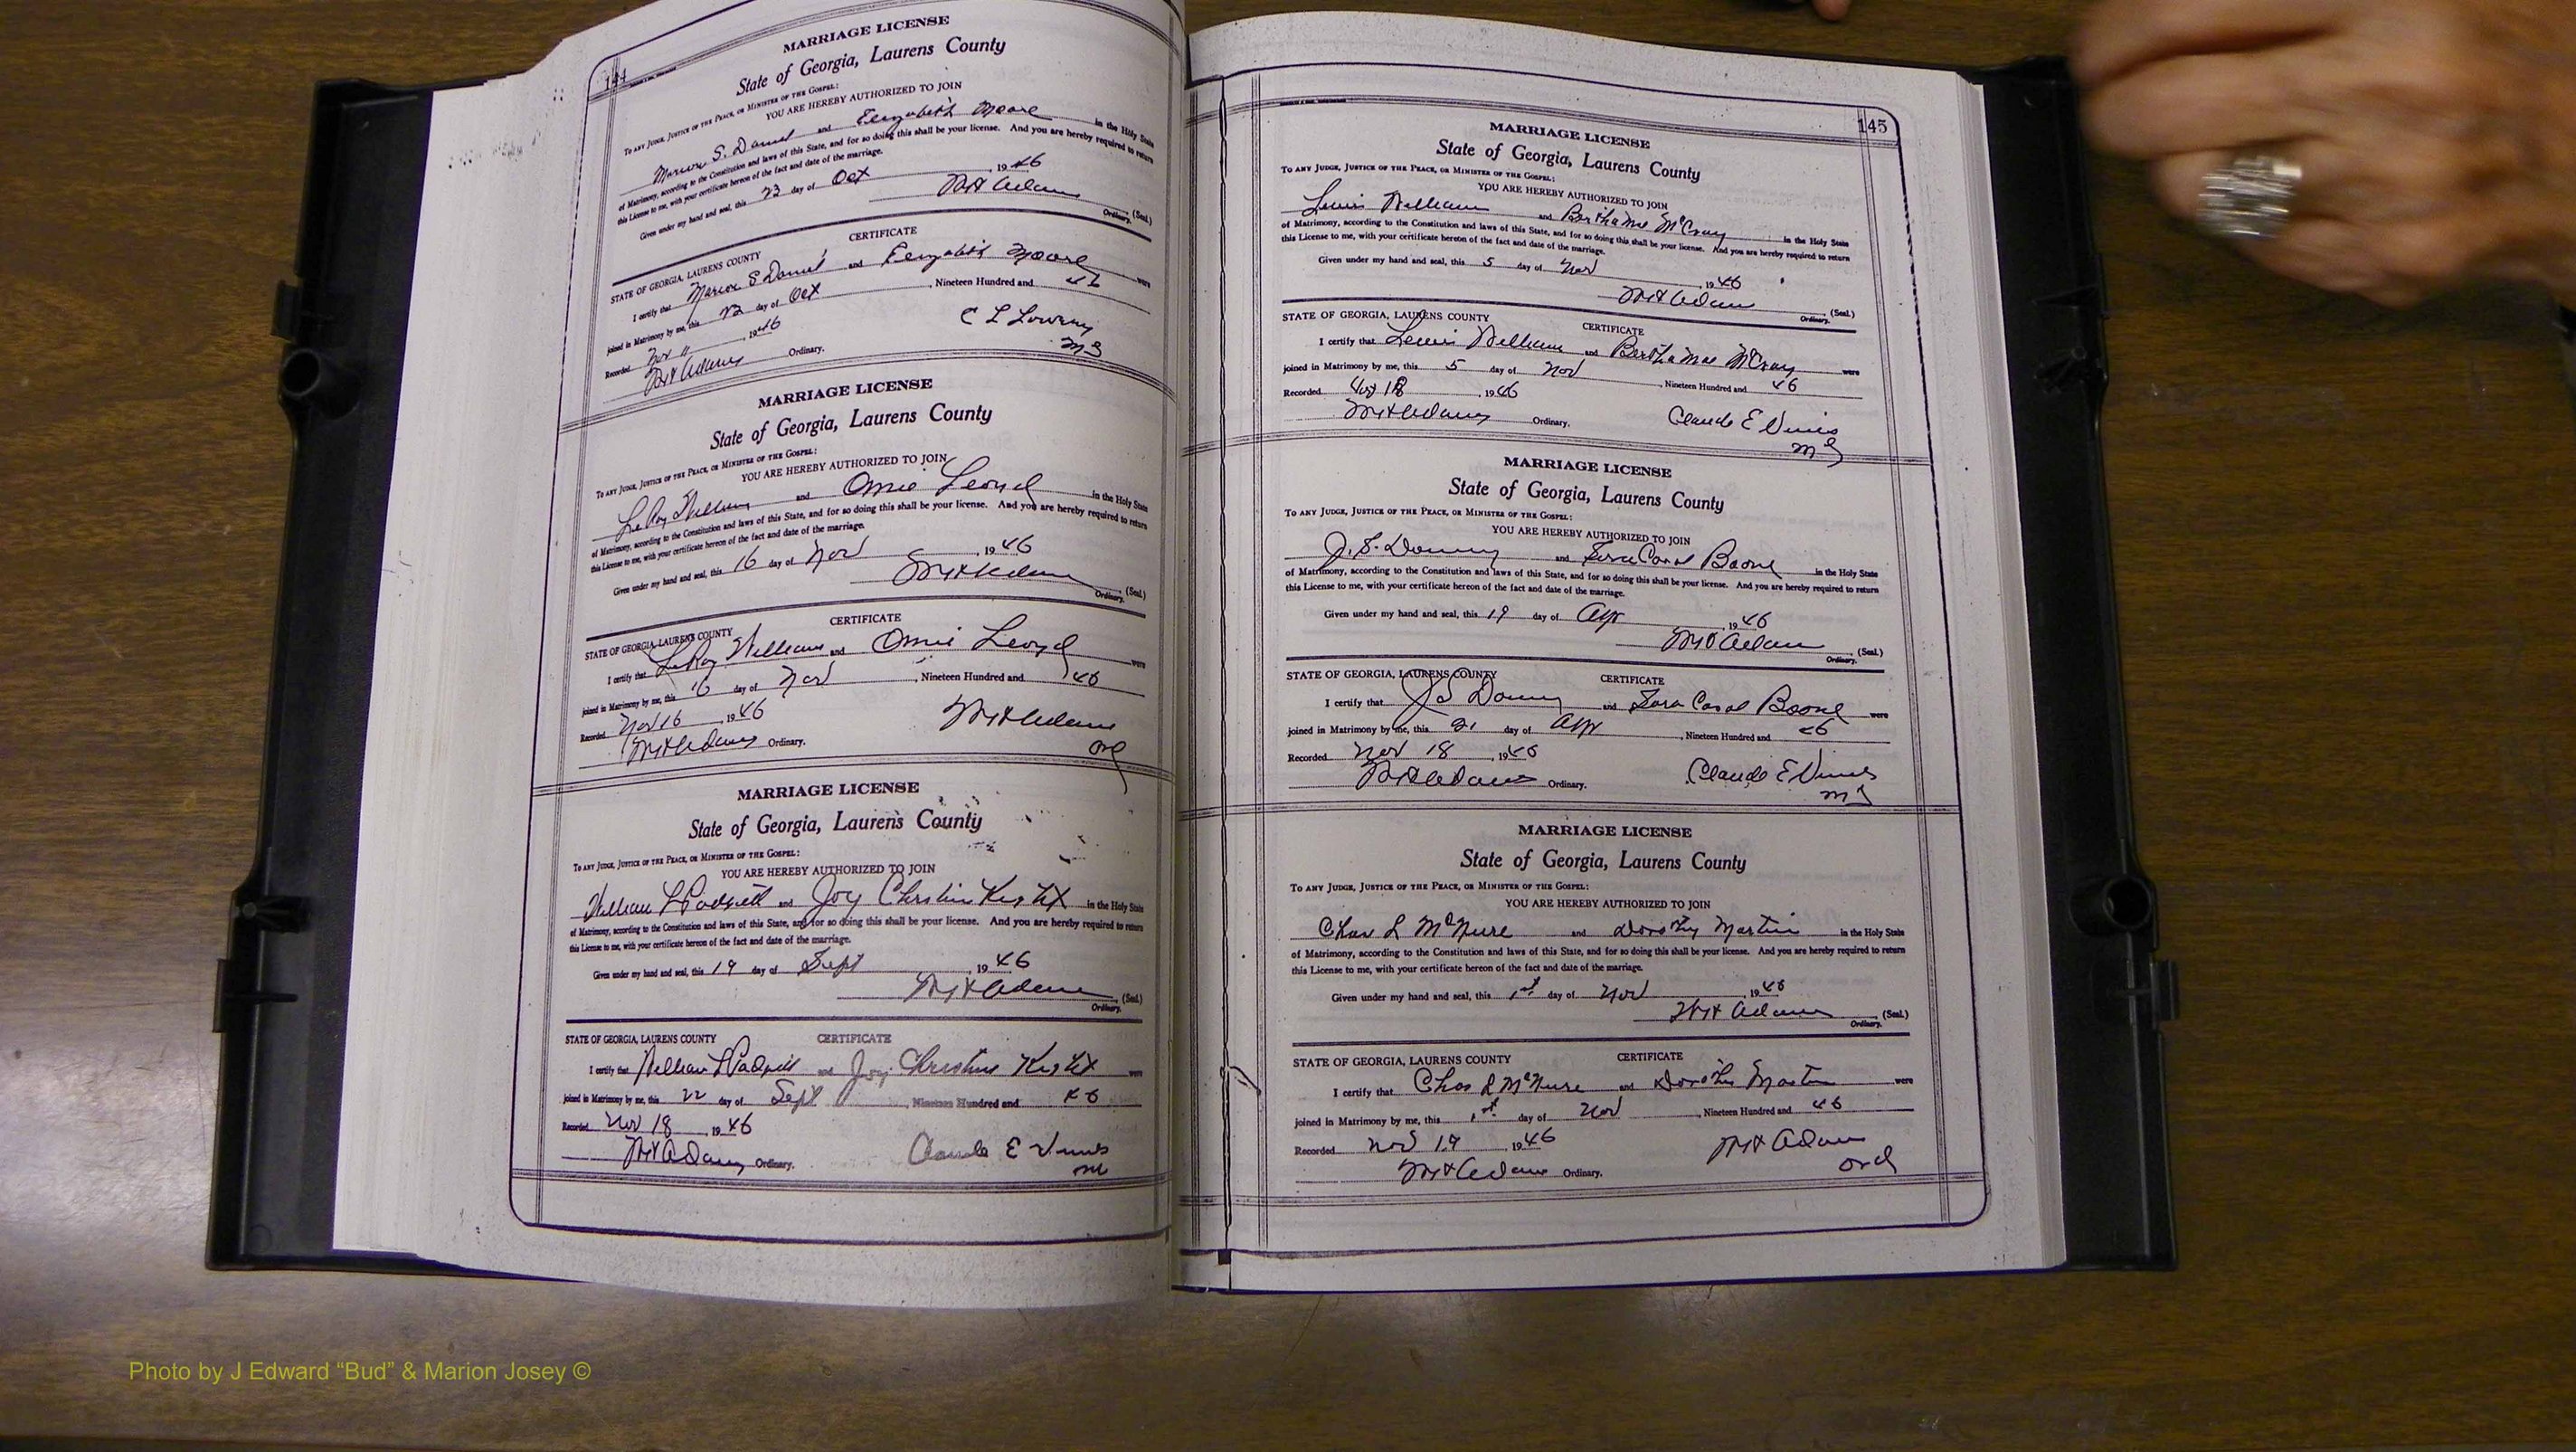 144
MARRIAGE LICENSE
State of Georgia, Laurens County
TO ANY JUDGE, JUSTICE OF THE PEACE, OR MINISTER OF THE GOSPEL:
YOU ARE HEREBY AUTHORIZED TO JOIN
Marion S. Daniel and Elizabeth Moore in the Holy State
of Matrimony, according to the Constitution and laws of this State, and for so doing this shall be your license. And you are hereby required to return
this License to me, with your certificate hereon of the fact and date of the marriage.
Given under my hand and seal, this day of Oct , 1946
Adams (Seal.)
Ordinary.
CERTIFICATE
STATE OF GEORGIA, LAURENS COUNTY
I certify that Marion S Daniel and Moore were
joined in Matrimony by me, this day of Oct , Nineteen Hundred and 46
Recorded Nov 11 , 1946 C L
Adams Ordinary. MG
MARRIAGE LICENSE
State of Georgia, Laurens County
TO ANY JUDGE, JUSTICE OF THE PEACE, OR MINISTER OF THE GOSPEL:
YOU ARE HEREBY AUTHORIZED TO JOIN
LeRoy William and Omie in the Holy State
of Matrimony, according to the Constitution and laws of this State, and for so doing this shall be your license. And you are hereby required to return
this License to me, with your certificate hereon of the fact and date of the marriage.
Given under my hand and seal, this 16 day of Nov , 1946
Adams (Seal.)
Ordinary.
CERTIFICATE
STATE OF GEORGIA, LAURENS COUNTY
I certify that LeRoy William and Omie were
joined in Matrimony by me, this 16 day of Nov , Nineteen Hundred and 46
Recorded Nov 16 , 1946 Adams
Adams Ordinary. Ord
MARRIAGE LICENSE
State of Georgia, Laurens County
TO ANY JUDGE, JUSTICE OF THE PEACE, OR MINISTER OF THE GOSPEL:
YOU ARE HEREBY AUTHORIZED TO JOIN
William L Padgett and Joy Christine in the Holy State
of Matrimony, according to the Constitution and laws of this State, and for so doing this shall be your license. And you are hereby required to return
this License to me, with your certificate hereon of the fact and date of the marriage.
Given under my hand and seal, this 19 day of Sept , 1946
Adams (Seal.)
Ordinary.
STATE OF GEORGIA, LAURENS COUNTY CERTIFICATE
I certify that William L Padgett and Joy Christine were
joined in Matrimony by me, this 22 day of Sept , Nineteen Hundred and 46
Recorded Nov 18 , 1946
Adams Ordinary. Claude E Vines
MG
145
MARRIAGE LICENSE
State of Georgia, Laurens County
TO ANY JUDGE, JUSTICE OF THE PEACE, OR MINISTER OF THE GOSPEL:
YOU ARE HEREBY AUTHORIZED TO JOIN
Lewis William and Bertha Mae McCray in the Holy State
of Matrimony, according to the Constitution and laws of this State, and for so doing this shall be your license. And you are hereby required to return
this License to me, with your certificate hereon of the fact and date of the marriage.
Given under my hand and seal, this 5 day of Nov , 1946
Adams (Seal.)
Ordinary.
STATE OF GEORGIA, LAURENS COUNTY CERTIFICATE
I certify that Lewis William and Bertha Mae McCray were
joined in Matrimony by me, this 5 day of Nov , Nineteen Hundred and 46
Recorded Nov 18 , 1946
Adams Ordinary. Claude E Vines
MG
MARRIAGE LICENSE
State of Georgia, Laurens County
TO ANY JUDGE, JUSTICE OF THE PEACE, OR MINISTER OF THE GOSPEL:
YOU ARE HEREBY AUTHORIZED TO JOIN
J. S. and Sara Carol Boone in the Holy State
of Matrimony, according to the Constitution and laws of this State, and for so doing this shall be your license. And you are hereby required to return
this License to me, with your certificate hereon of the fact and date of the marriage.
Given under my hand and seal, this 19 day of Apr , 1946
Adams (Seal.)
Ordinary.
STATE OF GEORGIA, LAURENS COUNTY CERTIFICATE
I certify that J S and Sara Carol Boone were
joined in Matrimony by me, this 21 day of Apr , Nineteen Hundred and 46
Recorded Nov 18 , 1946
Adams Ordinary. Claude E Vines
MG
MARRIAGE LICENSE
State of Georgia, Laurens County
TO ANY JUDGE, JUSTICE OF THE PEACE, OR MINISTER OF THE GOSPEL:
YOU ARE HEREBY AUTHORIZED TO JOIN
Chas L and Dorothy Martin in the Holy State
of Matrimony, according to the Constitution and laws of this State, and for so doing this shall be your license. And you are hereby required to return
this License to me, with your certificate hereon of the fact and date of the marriage.
Given under my hand and seal, this 1st day of Nov , 1946
Adams (Seal.)
Ordinary.
STATE OF GEORGIA, LAURENS COUNTY CERTIFICATE
I certify that Chas L and Dorothy Martin were
joined in Matrimony by me, this 1st day of Nov , Nineteen Hundred and 46
Recorded Nov 19 , 1946 Adams
Adams Ordinary. Ord
Photo by J Edward “Bud” & Marion Josey ©